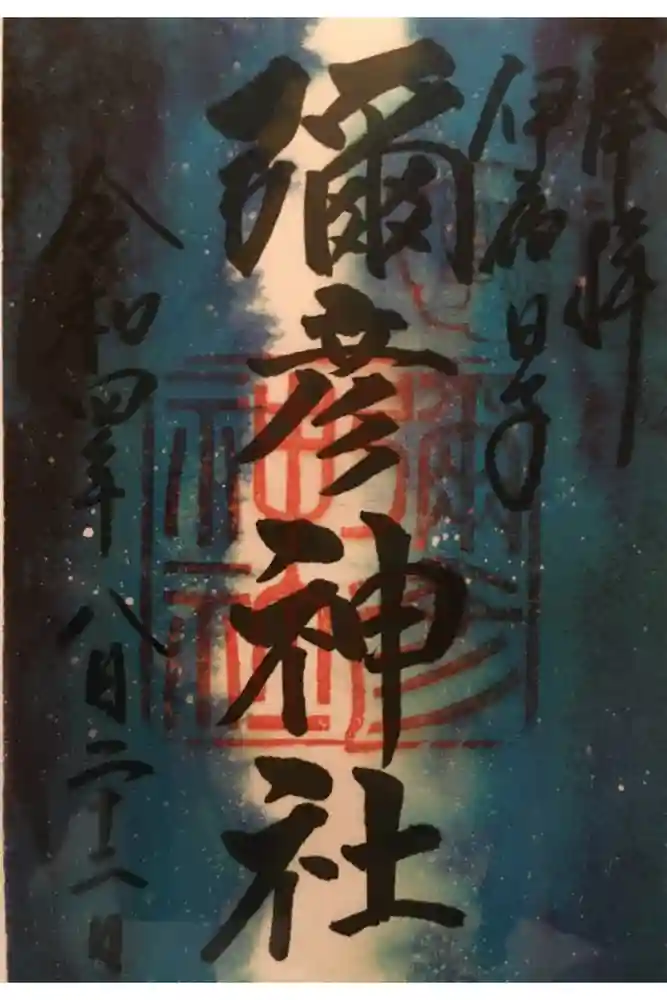 奉拝
伊夜日子
彌彦神社
令和四年八月二十二日